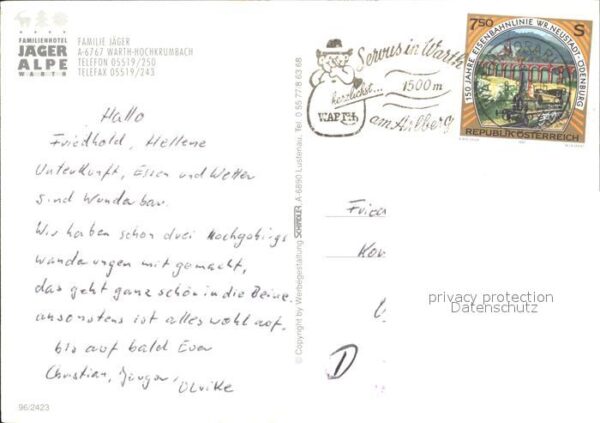 FAMILIENHOTEL
JÄGER
ALPE
WARTH
FAMILIE JÄGER
A-6767 WARTH-HOCHKRUMBACH
TELEFON 05519/250
TELEFAX 05519/243
Hallo
Friedhold, Hellene
Unterkunft, Essen und Wetter
sind Wunderbar.
Wir haben schon drei Hochgebirgs
wanderungen mit gemacht,
das geht ganz schön in die Beine.
ansonstens ist alles wohl auf.
bis auf bald Euer
Christian, Jürgen,
Ulrike
96/2423
© Copyright by Werbegestaltung SCHINDLER A-6890 Lustenau, Tel. 0 55 77 8 63 68
Servus in Warth
herzlichst...
1500 m
WARTH
am Arlberg
7.50 S
150 JAHRE EISENBAHNLINIE WR. NEUSTADT-ÖDENBURG
REPUBLIK ÖSTERREICH
Fried
D
privacy protection
Datenschutz